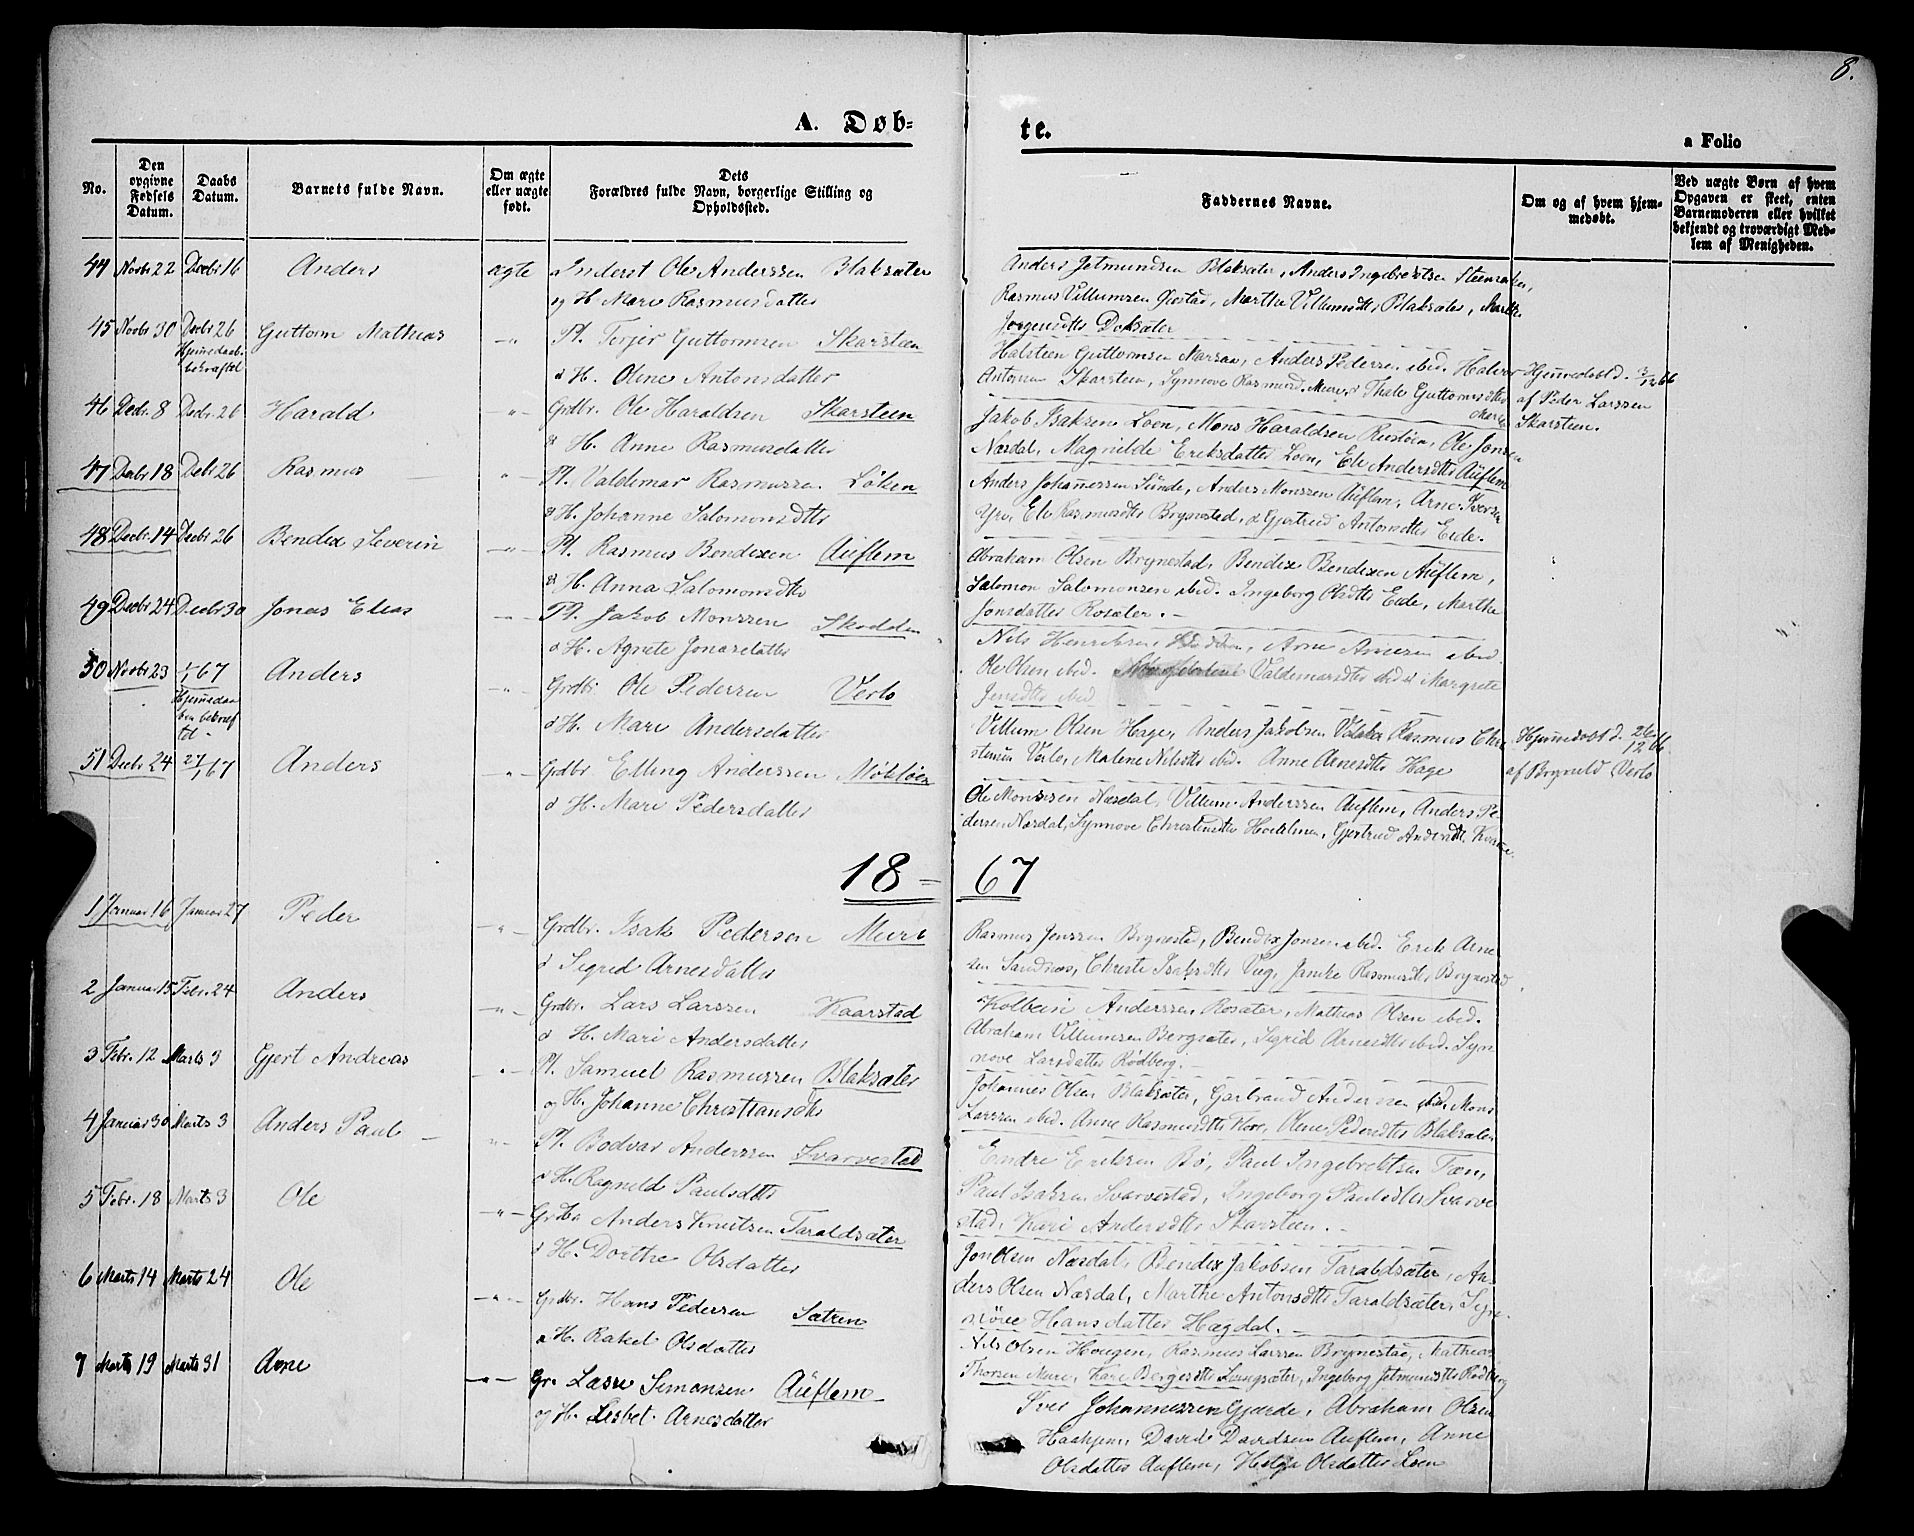 8.
A. Døb-
te.
a Folio
No.
Den opgivne Fødsels Datum.
Daabs Datum.
Barnets fulde Navn.
Om ægte eller uægte født.
Dets Forældres fulde Navn, borgerlige Stilling og Opholdssted.
Faddernes Navne.
Om og af hvem hjemmedøbt.
Ved uægte Børn af hvem Opgaven er skeet, enten Barnemoderen eller hvilket bekjendt og troværdigt Medlem af Menigheden.
44 Novbr 22 Decbr 16 Anders ægte Inderst Ole Anderssen Blaksæter
og H. Mari Rasmusdatter
Anders Jetmundsen Blaksæter, Anders Ingebretsen
Rasmus Villumsen, Marthe Villumsdtr Blaksæter,
Jørgensdtr
45 Novbr 30 Decbr 26 Guttorm Mathias -"- Pl. Terjer Guttormsen Skarsteen
Hjemedaab. bekræftet
& H. Oline Antonsdatter
Halsteen Guttormsen, Anders Pedersen ibid.
Antonsen Skarsteen, Synnove Rasmusd. Muri, & Thale Guttormsdtr
Hjemedøbt d. 3/12 66
af Peder Larssen
Skarsteen.
46 Decbr. 8 Decbr. 26 Harald -"- Grdbr. Ole Haraldsen Skarsteen
& H. Anne Rasmusdatter
Jakob Isaksen Loen, Mons Haraldsen, Ole Jonsen
Næsdal, Magnilde Eriksdatter Loen, Eli Andersdtr Auflem
47 Decbr 18 Decbr 26 Rasmus -"- Pl. Valdemar Rasmussen Løken
& H. Johanne Salomonsdtr
Anders Johannessen Sunde, Anders Monssen Auflem, Arne Iversen
Yri, Eli Rasmusdtr Brynestad, & Gjertrud Antonsdtr Eide.
48 Decbr 14 Decbr 26 Bendix Severin -"- Pl. Rasmus Bendixen Auflem
& H. Anna Salomonsdtr
Abraham Olsen Brynestad, Bendix Bendixen Auflem,
Salomon Salomonsen ibid. Ingeborg Olsdtr Eide, Marthe
Jonsdatter Rosæter. -
49 Decbr 24 Decbr 30 Jonas Elias -"- Pl. Jakob Monssen Skodden
& H. Agnete Jonasdatter
Nils Henriksen, Arne Arnesen ibid.
Ole Olsen ibid. Valdemarsdtr ibid & Margrete
Jensdtr ibid
50 Novbr 23 1/1 67 Anders -"- Grdbr. Ole Pederssen Verlo
Hjemedaaben bekræftet -
& H. Mari Andersdatter
Villum Olsen Hage, Anders Jakobsen, Rasmus Chri
stensen Verlo, Malene Nilsdtr ibid. Anne Arnesdtr Hage
Hjemedøbt d. 26/12 66
af Brynild Verlo
51 Decbr 24 27/1 67 Anders -"- Grdbr Elling Anderssen Mykløen
& H. Mari Pedersdatter
Ole Monssen Næsdal, Villum Anderssen Auflem, Anders Pe
dersen Næsdal, Synnove Christensdtr, Gjertrud Andersdtr.
18 - 67
1 Januar 16 Januar 27 Peder -"- Grdbr. Isak Pedersen Muri
& Sigrid Arnesdatter
Rasmus Jenssen Brynestad, Bendix Jonsen ibid. Erik Arne
sen Sandnes, Christi Isaksdtr Vug, Janike Rasmusdtr, Brynestad
2 Januar 15 Febr. 24 Anders -"- Grdbr. Lars Larssen Kaarstad
& H. Mari Andersdatter
Kolbein Anderssen Rosæter, Mathias Olsen ibid.
Abraham Villumsen Bergsæter, Sigrid Arnesdtr ibid. Syn
nove Larsdatter Rødberg. -
3 Febr. 12 Marts 3 Gjert Andreas -"- Pl. Samuel Rasmussen Blaksæter
og H. Johanne Christiansdtr
Johannes Olsen Blaksæter, Garbrand Anderssen ibid, Mons
Larssen ibid. Anne Rasmusdtr Flore, Oline Pedersdtr Blaksæter
4 Januar 30 Marts 3 Anders Paul -"- Pl. Bodvar Anderssen Svarvestad
& H. Ragnild Paulsdtr
Endre Eriksen Bø, Paul Ingebrektsen Tæn,
Paul Isaksen Svarvestad, Ingeborg Paulsdtr Svarve
stad, Kari Andersdtr Skarsteen. -
5 Febr. 18 Marts 3 Ole -"- Grdbr Anders Knutsen Taraldsæter
& H. Dorthe Olsdatter
Jon Olsen Næsdal, Bendix Jakobsen Taraldsæter, An
ders Olsen Næsdal, Marthe Antonsdtr Taraldsæter, Syn
növe Hansdatter Hægdal. -
6 Marts 14 Marts 24 Ole -"- Grdbr. Hans Pedersen Sætren
& H. Rakel Olsdatter
Nils Olsen Hougen, Rasmus Larssen Brynestad, Mathias
Thorsen Muri, Kari Børgesdtr Langsæter, Ingeborg Jetmundsdtr Rødberg
7 Marts 19 Marts 31 Arne -"- Gr. Lasse Simonsen Auflem
og H. Lisbet Arnesdatter
Iver Johannessen Gjærde, Abraham Olsen
Haahjem, David Davidsen Auflem, Anne
Olsdatter Auflem, Helga Olsdatter Loen